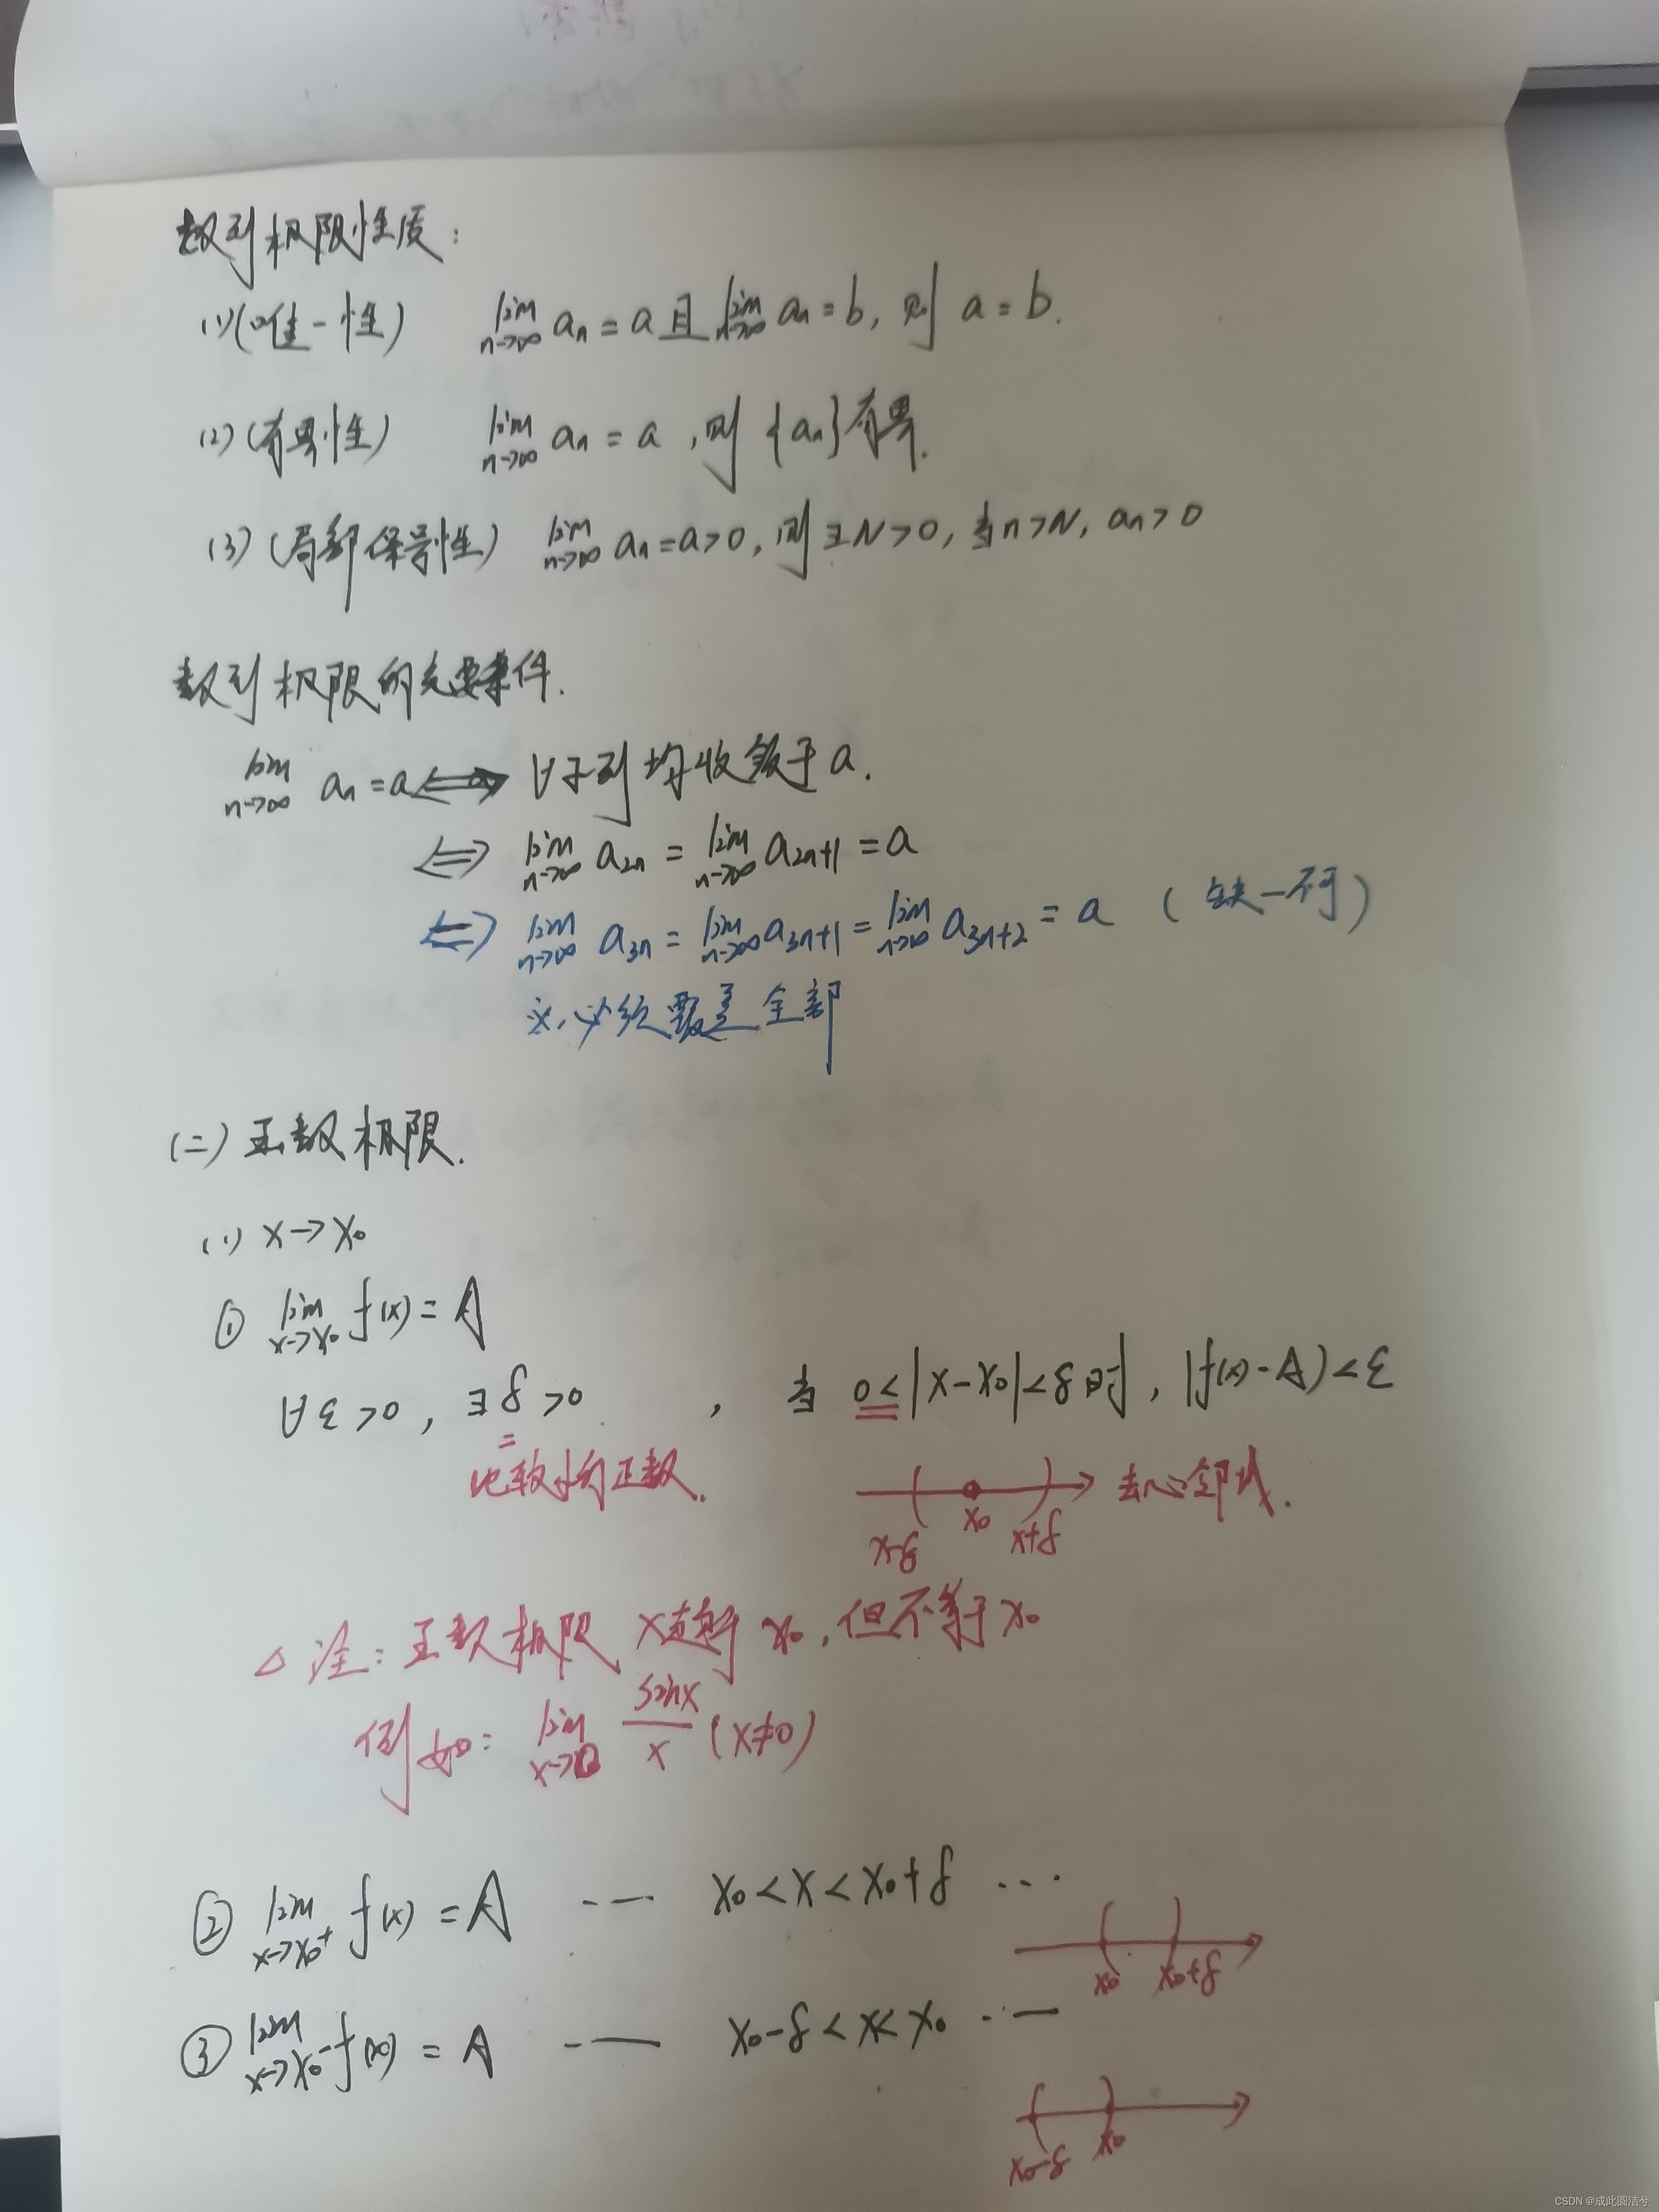 数列极限性质：
(1) (唯一性) lim n→∞ an = a 且 lim n→∞ an = b, 则 a = b.
(2) (有界性) lim n→∞ an = a, 则 {an} 有界.
(3) (局部保号性) lim n→∞ an = a > 0, 则 ∃N > 0, 当 n > N, an > 0
数列极限的充要条件.
lim n→∞ an = a ⟺ ∀子列均收敛于 a.
⟺ lim n→∞ a2n = lim n→∞ a2n+1 = a
⟺ lim n→∞ a3n = lim n→∞ a3n+1 = lim n→∞ a3n+2 = a (缺一不可)
※. 必须覆盖全部
(二) 函数极限.
(1) x→x0
① lim x→x0 f(x) = A
∀ε > 0, ∃δ > 0 , 当 0 < |x - x0| < δ 时, |f(x) - A| < ε
比较小的正数.
去心邻域.
x-δ x0 x+δ
△ 注: 函数极限 x趋于 x0, 但不等于 x0
例如: lim x→0 sinx/x (x≠0)
② lim x→x0+ f(x) = A —— x0 < x < x0+δ ···
x0 x0+δ
③ lim x→x0- f(x) = A —— x0-δ < x < x0 ··—
x0-δ x0
CSDN @成此圆洁兮